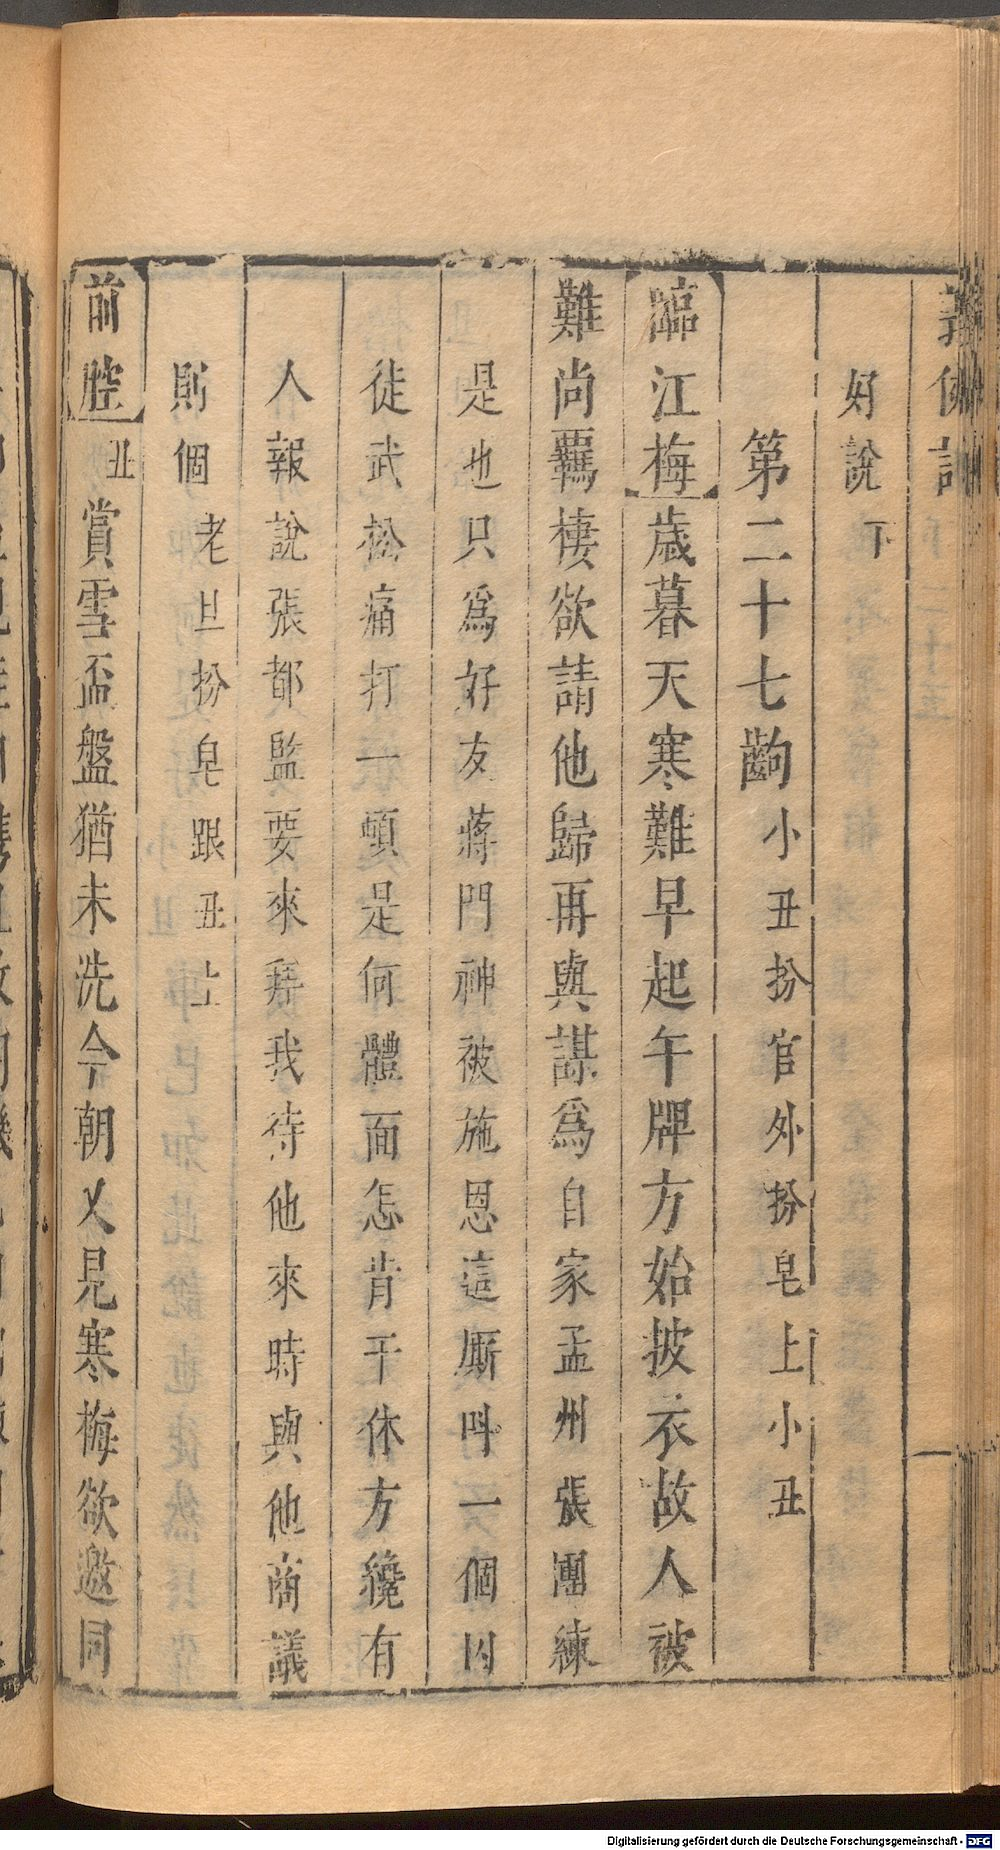 義俠記
好說下
第二十七齣小丑扮官外扮皂上小丑
臨江梅歲暮天寒難早起午牌方始披衣故人被
難尚羈棲欲請他歸再與謀爲自家孟州張團練
是也只爲好友蔣門神被施恩這厮呌一個囚
徒武松痛打一頓是何體面怎肯干休方纔有
人報說張都監要來拜我待他來時與他商議
則個老旦扮皂跟丑上
前腔丑賞雪盃盤猶未洗今朝又見寒梅欲邀同
Digitalisierung gefördert durch die Deutsche Forschungsgemeinschaft - DFG